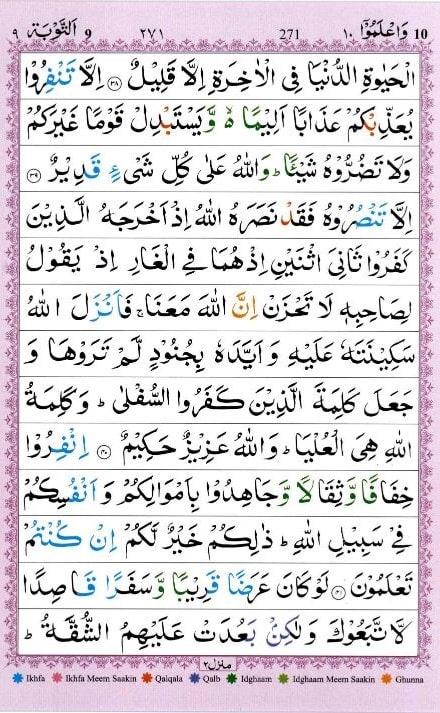 10 وَاعْلَمُوْٓا ١٠ 271 ٢٧١ 9 اَلتَّوْبَة ٩
الْحَيٰوةِ الدُّنْيَا فِى الْاٰخِرَةِ اِلَّا قَلِيْلٌ ﴿٣٨﴾ اِلَّا تَنْفِرُوْا
يُعَذِّبْكُمْ عَذَابًا اَلِيْمًا ۙ وَّيَسْتَبْدِلْ قَوْمًا غَيْرَكُمْ
وَلَا تَضُرُّوْهُ شَيْـًٔا ؕ وَاللّٰهُ عَلٰى كُلِّ شَىْءٍ قَدِيْرٌ ﴿٣٩﴾
اِلَّا تَنْصُرُوْهُ فَقَدْ نَصَرَهُ اللّٰهُ اِذْ اَخْرَجَهُ الَّذِيْنَ
كَفَرُوْا ثَانِىَ اثْنَيْنِ اِذْ هُمَا فِى الْغَارِ اِذْ يَقُوْلُ
لِصَاحِبِهٖ لَا تَحْزَنْ اِنَّ اللّٰهَ مَعَنَا ۚ فَاَنْزَلَ اللّٰهُ
سَكِيْنَتَهٗ عَلَيْهِ وَاَيَّدَهٗ بِجُنُوْدٍ لَّمْ تَرَوْهَا وَ
جَعَلَ كَلِمَةَ الَّذِيْنَ كَفَرُوا السُّفْلٰى ؕ وَكَلِمَةُ
اللّٰهِ هِىَ الْعُلْيَا ؕ وَاللّٰهُ عَزِيْزٌ حَكِيْمٌ ﴿٤٠﴾ اِنْفِرُوْا
خِفَافًا وَّثِقَالًا وَّجَاهِدُوْا بِاَمْوَالِكُمْ وَاَنْفُسِكُمْ
فِىْ سَبِيْلِ اللّٰهِ ؕ ذٰلِكُمْ خَيْرٌ لَّكُمْ اِنْ كُنْتُمْ
تَعْلَمُوْنَ ﴿٤١﴾ لَوْ كَانَ عَرَضًا قَرِيْبًا وَّسَفَرًا قَاصِدًا
لَّاتَّبَعُوْكَ وَلٰكِنْۢ بَعُدَتْ عَلَيْهِمُ الشُّقَّةُ ؕ
منزل ٢
Ikhfa Ikhfa Meem Saakin Qalqala Qalb Idghaam Idghaam Meem Saakin Ghunna